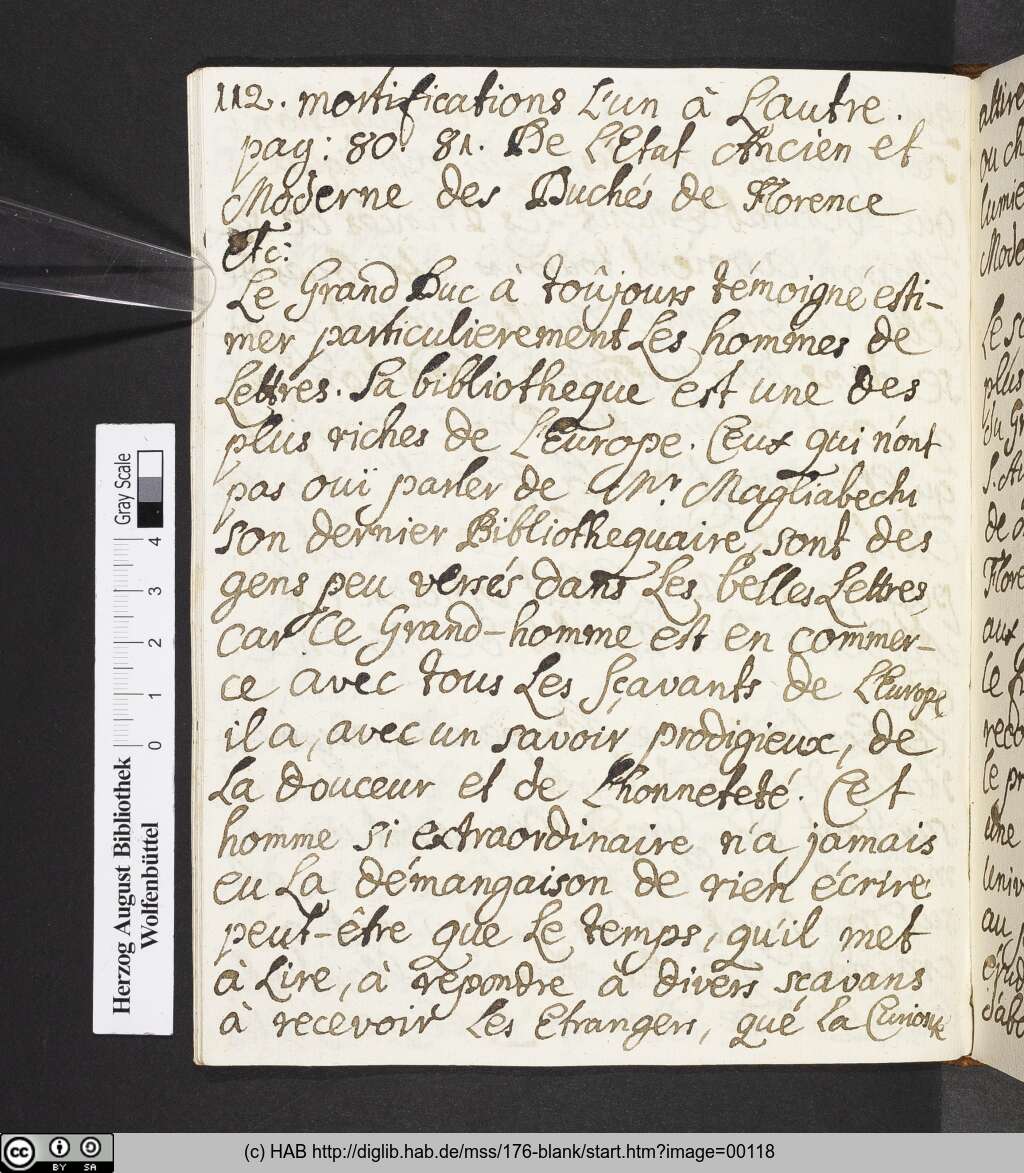 112. mortifications L'un à L'autre.
pag: 80. 81. De L'Etat Ancien et
Moderne des Duchés de Florence
etc:
Le Grand Duc à toûjours témoigné esti-
mer particulierement Les hommes de
Lettres. Sa bibliotheque est une des
plus riches de L'Europe. Ceux qui n'ont
pas ouï parler de Mr. Magliabechi
son dernier Bibliothequaire, sont des
gens peu versés dans Les belles Lettres,
car Ce Grand-homme est en commer-
ce avec tous Les Sçavants de L'Europe,
il a, avec un savoir prodigieux, de
La douceur et de L'honneteté. Cet
homme si extraordinaire n'a jamais
eu La démangaison de rien écrire
peut-être que Le temps, qu'il met
à Lire, à repondre à divers scavans
à recevoir Les Etrangers, qué La Curiosité
altire
ou ch
lumie
Mode
Le sc
plus
du Gr
de
Flore
aux
Le
reco
le pr
une
Univ
au
d'abo
Gray Scale
0 1 2 3 4
Herzog August Bibliothek
Wolfenbüttel
cc BY SA
(c) HAB http://diglib.hab.de/mss/176-blank/start.htm?image=00118